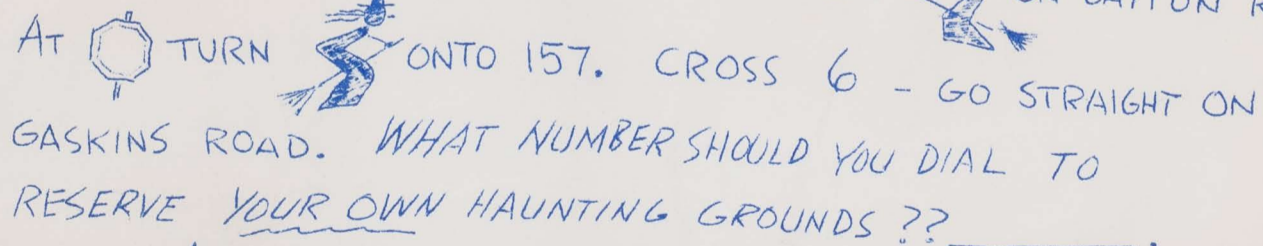 AT TURN ONTO 157. CROSS 6 - GO STRAIGHT ON
GASKINS ROAD. WHAT NUMBER SHOULD YOU DIAL TO
RESERVE YOUR OWN HAUNTING GROUNDS ??